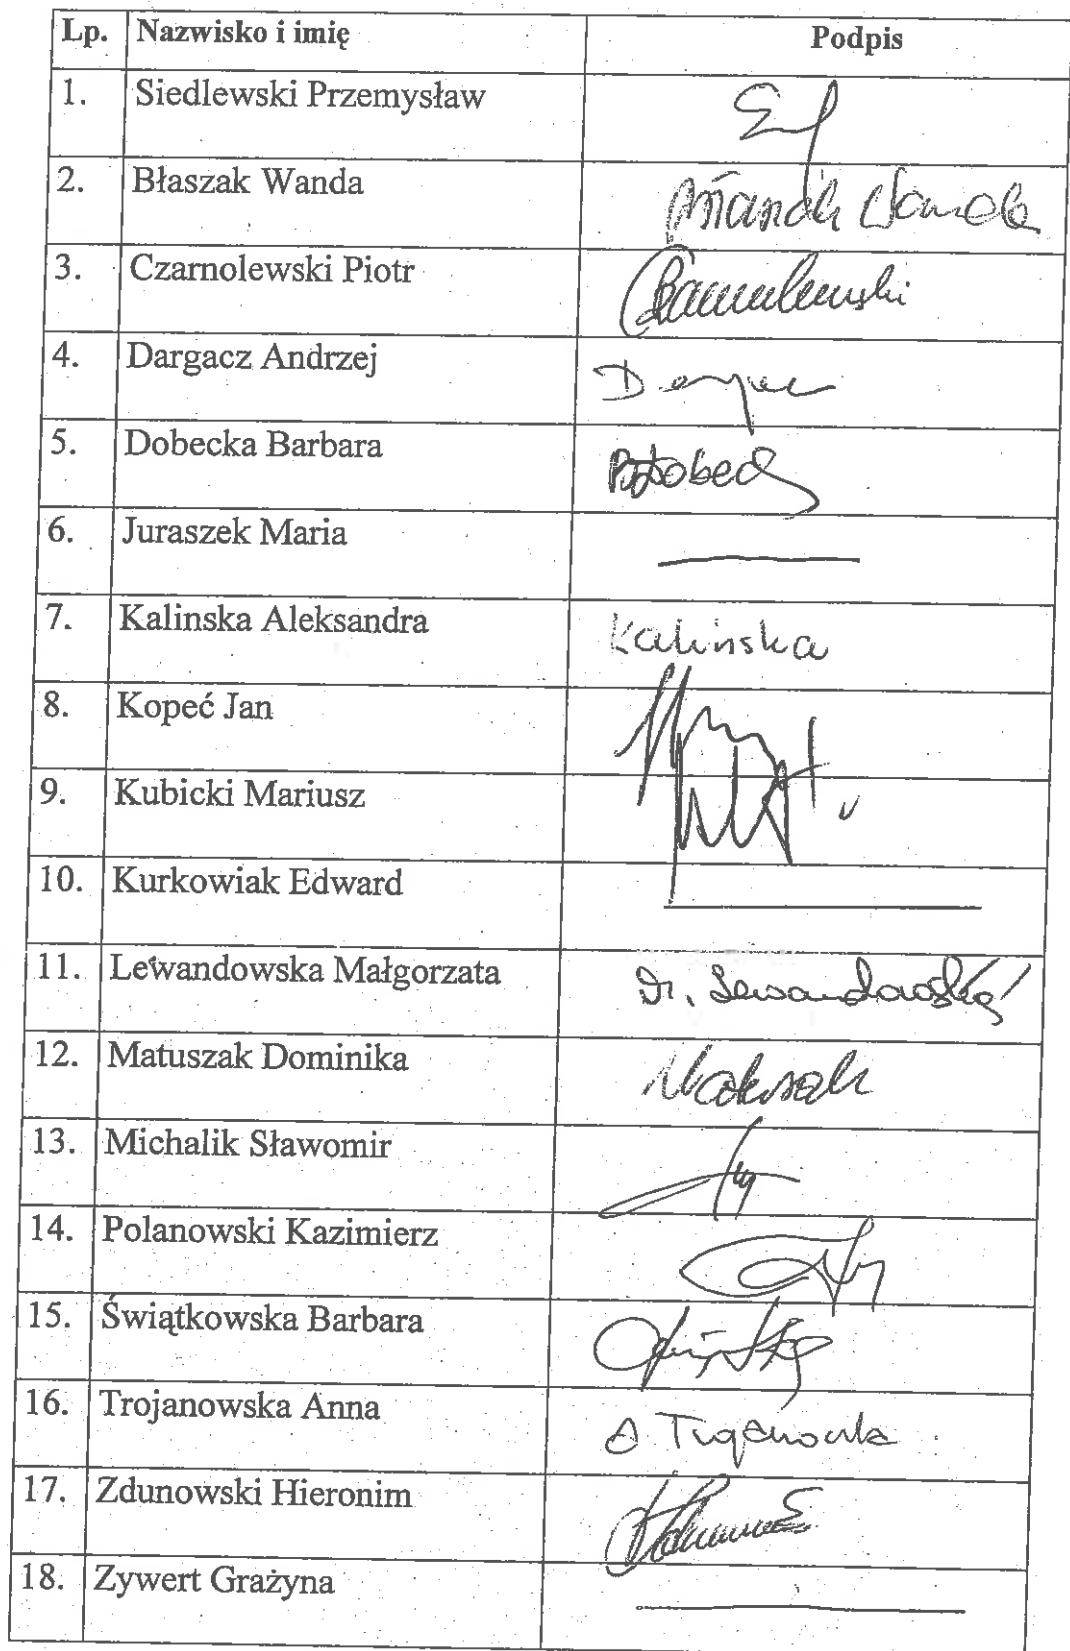 Lp. Nazwisko i imię Podpis
1. Siedlewski Przemysław
2. Błaszak Wanda
3. Czarnolewski Piotr
4. Dargacz Andrzej
5. Dobecka Barbara
6. Juraszek Maria
7. Kalinska Aleksandra Kalinska
8. Kopeć Jan
9. Kubicki Mariusz
10. Kurkowiak Edward
11. Lewandowska Małgorzata Lewandowska
12. Matuszak Dominika
13. Michalik Sławomir
14. Polanowski Kazimierz
15. Świątkowska Barbara
16. Trojanowska Anna
17. Zdunowski Hieronim
18. Zywert Grażyna